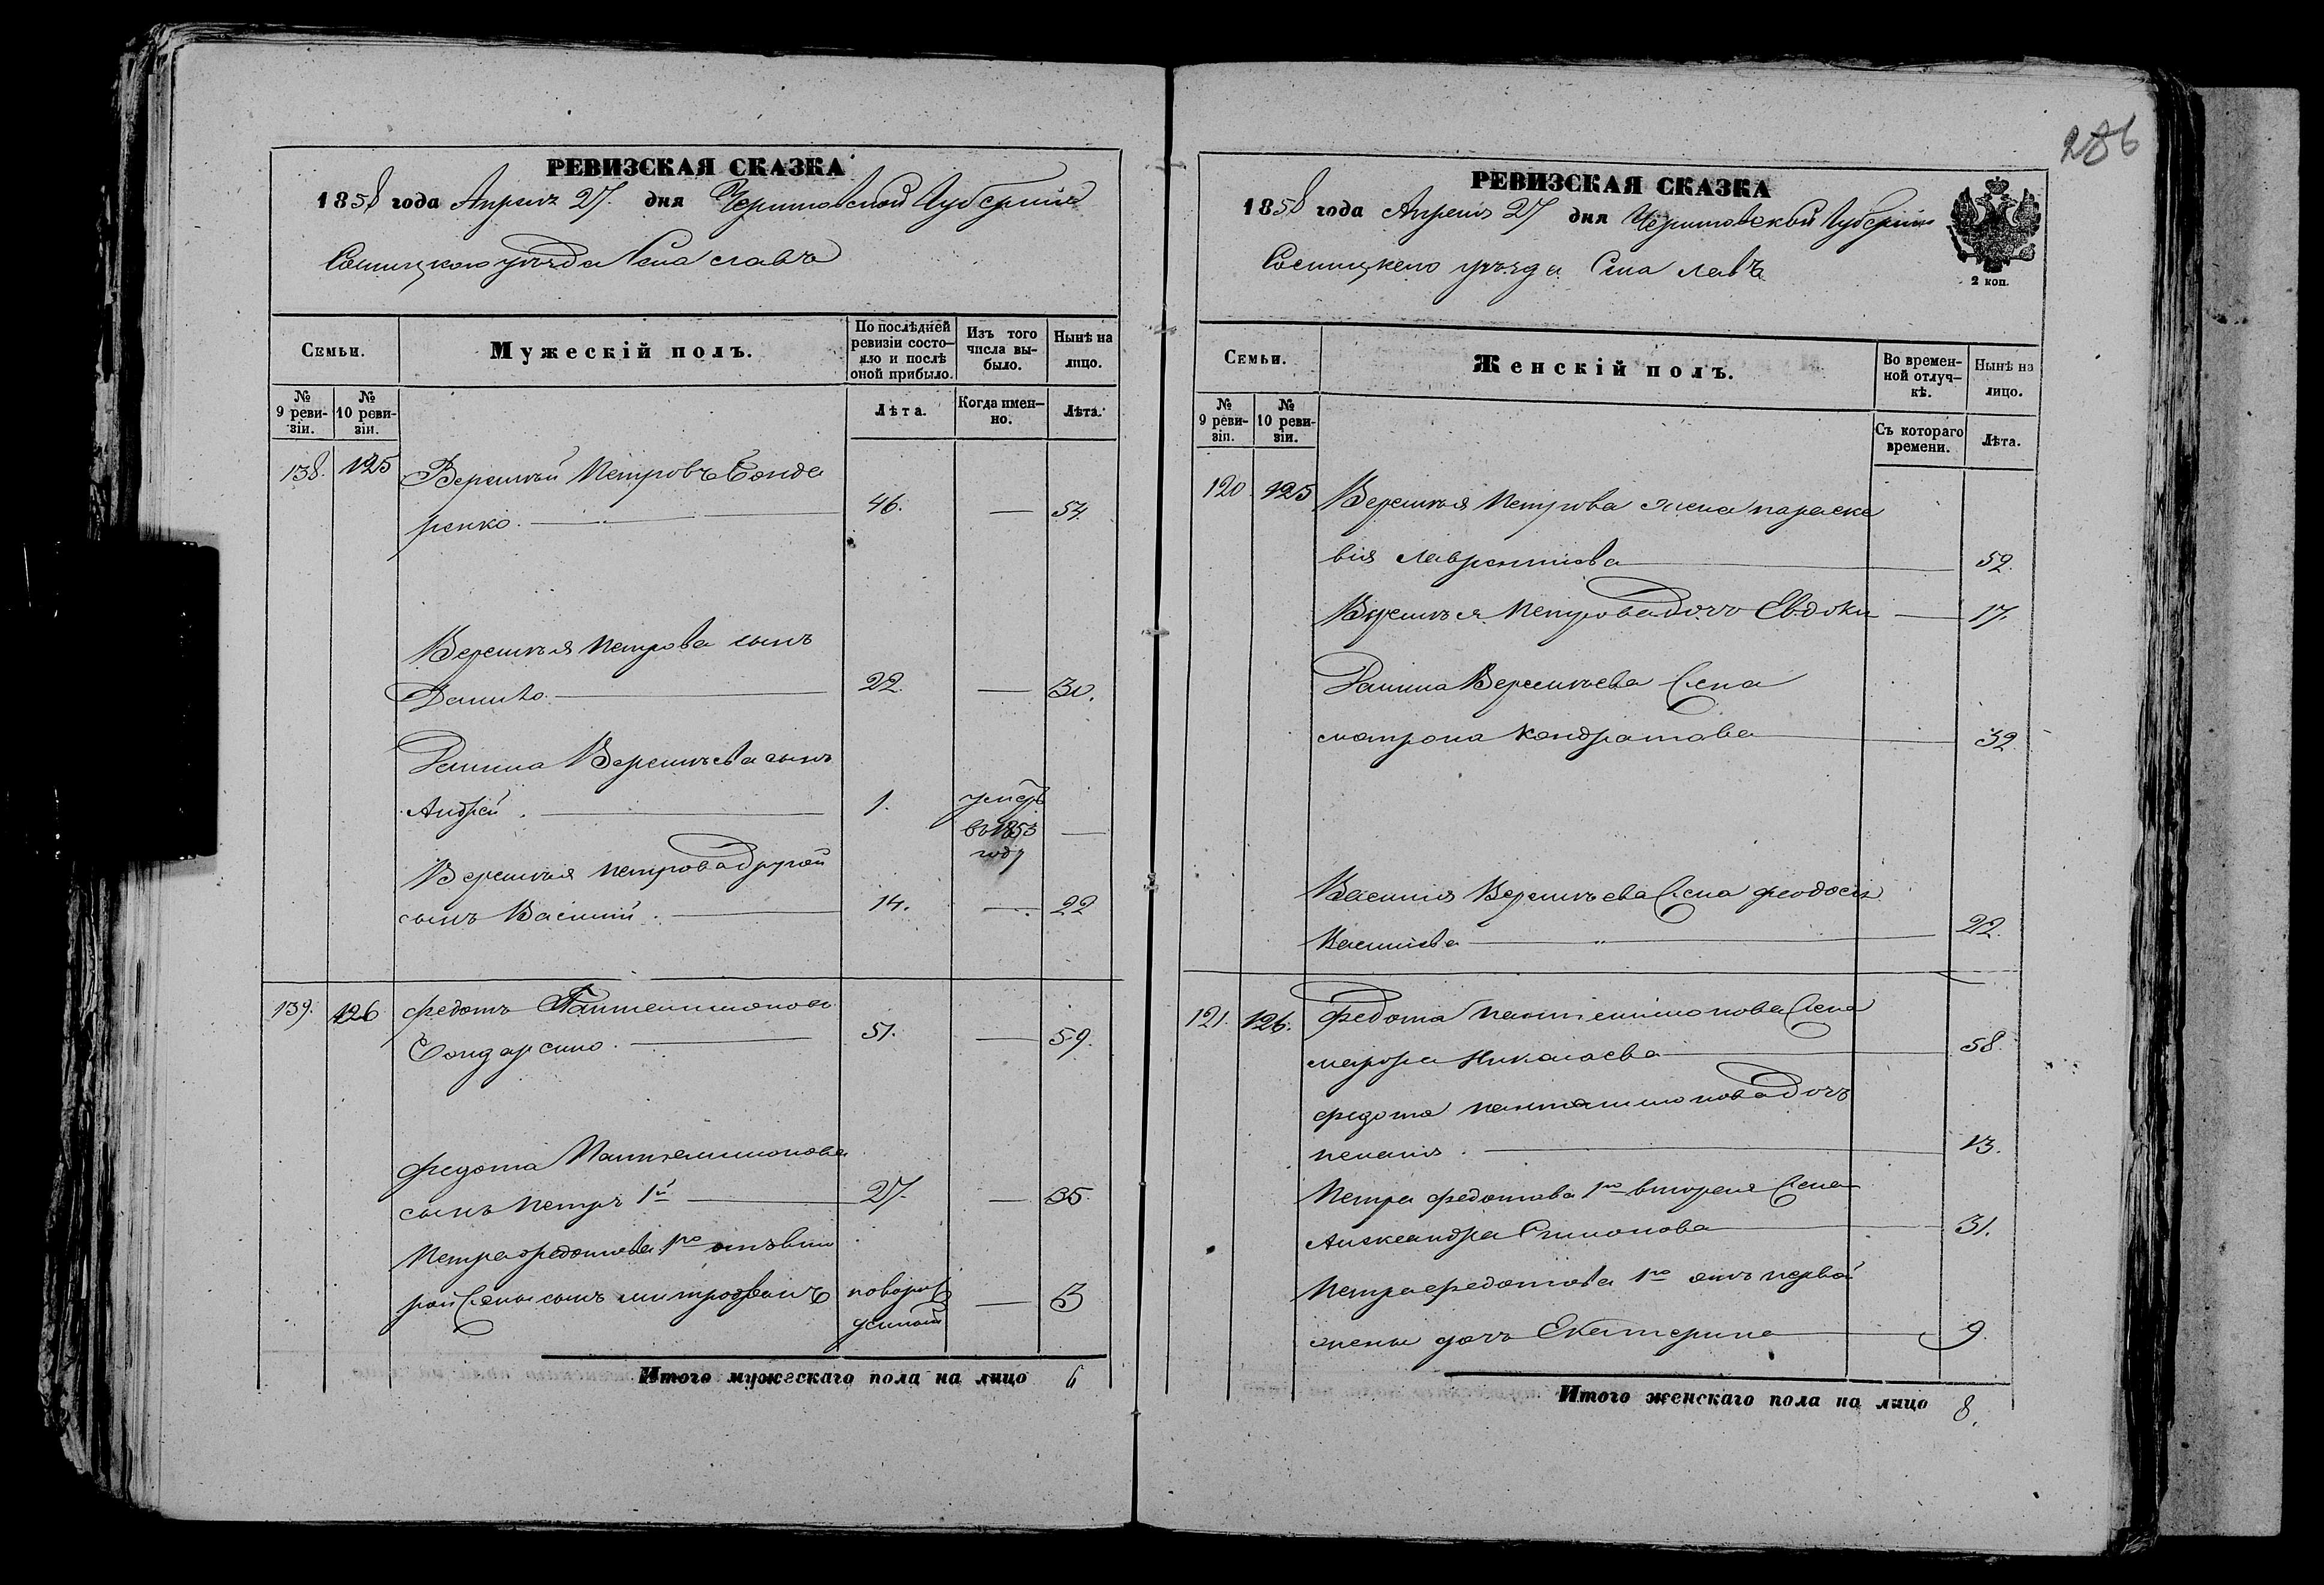 286
РЕВИЗСКАЯ СКАЗКА
1858 года Апреля 27. дня Черниговской Губернии
Сосницкого уезда Села Славъ
Семьи.
Мужескій полъ.
По послѣдней ревизіи состояло и послѣ оной прибыло.
Изъ того числа выбыло.
Нынѣ на лицо.
№ 9 ревизіи.
№ 10 ревизіи.
Лѣта.
Когда именно.
Лѣта.
138. 125 Веремѣй Петровъ Бонда
ренко. 46. — 54.
Веремѣя Петрова сынъ
Данило. 22. — 30.
Данила Веремѣева сынъ
Андрей. 1. умеръ
въ 1853 —
году
Веремѣя Петрова другой
сынъ Василий. 14. — 22
139. 126 Федотъ Пантелимоновъ
Бондаренко. 51. — 59.
Федота Пантелимонова
сынъ Петръ 1й 27. — 35.
Петра Федотова 1го отъ вто
рой жены сынъ Митрофанъ новорож — 3
Итого мужескаго пола на лицо 6
РЕВИЗСКАЯ СКАЗКА
1858 года Апреля 27 дня Черниговской Губернии
Сосницкого уезда Села Лавъ
2 коп.
Семьи.
Женскій полъ.
Во временной отлучкѣ.
Нынѣ на лицо.
№ 9 ревизіи.
№ 10 ревизіи.
Съ котораго времени.
Лѣта.
120. 125 Веремѣя Петрова жена Параске
вія Лаврентиева 52.
Веремѣя Петрова дочь Евдоки — 17.
Данила Веремѣева жена
Матрона Кондратова 32
Василия Веремѣева жена Феодосия
Василиева 22.
121. 126. Федота Пантелимонова жена
Марфа Николаева 58.
Федота Пантелимонова дочь
13.
Петра Федотова 1го вторая жена
Александра Симонова 31.
Петра Федотова 1го отъ первой
жены дочь Екатерина 9.
Итого женскаго пола на лицо 8.